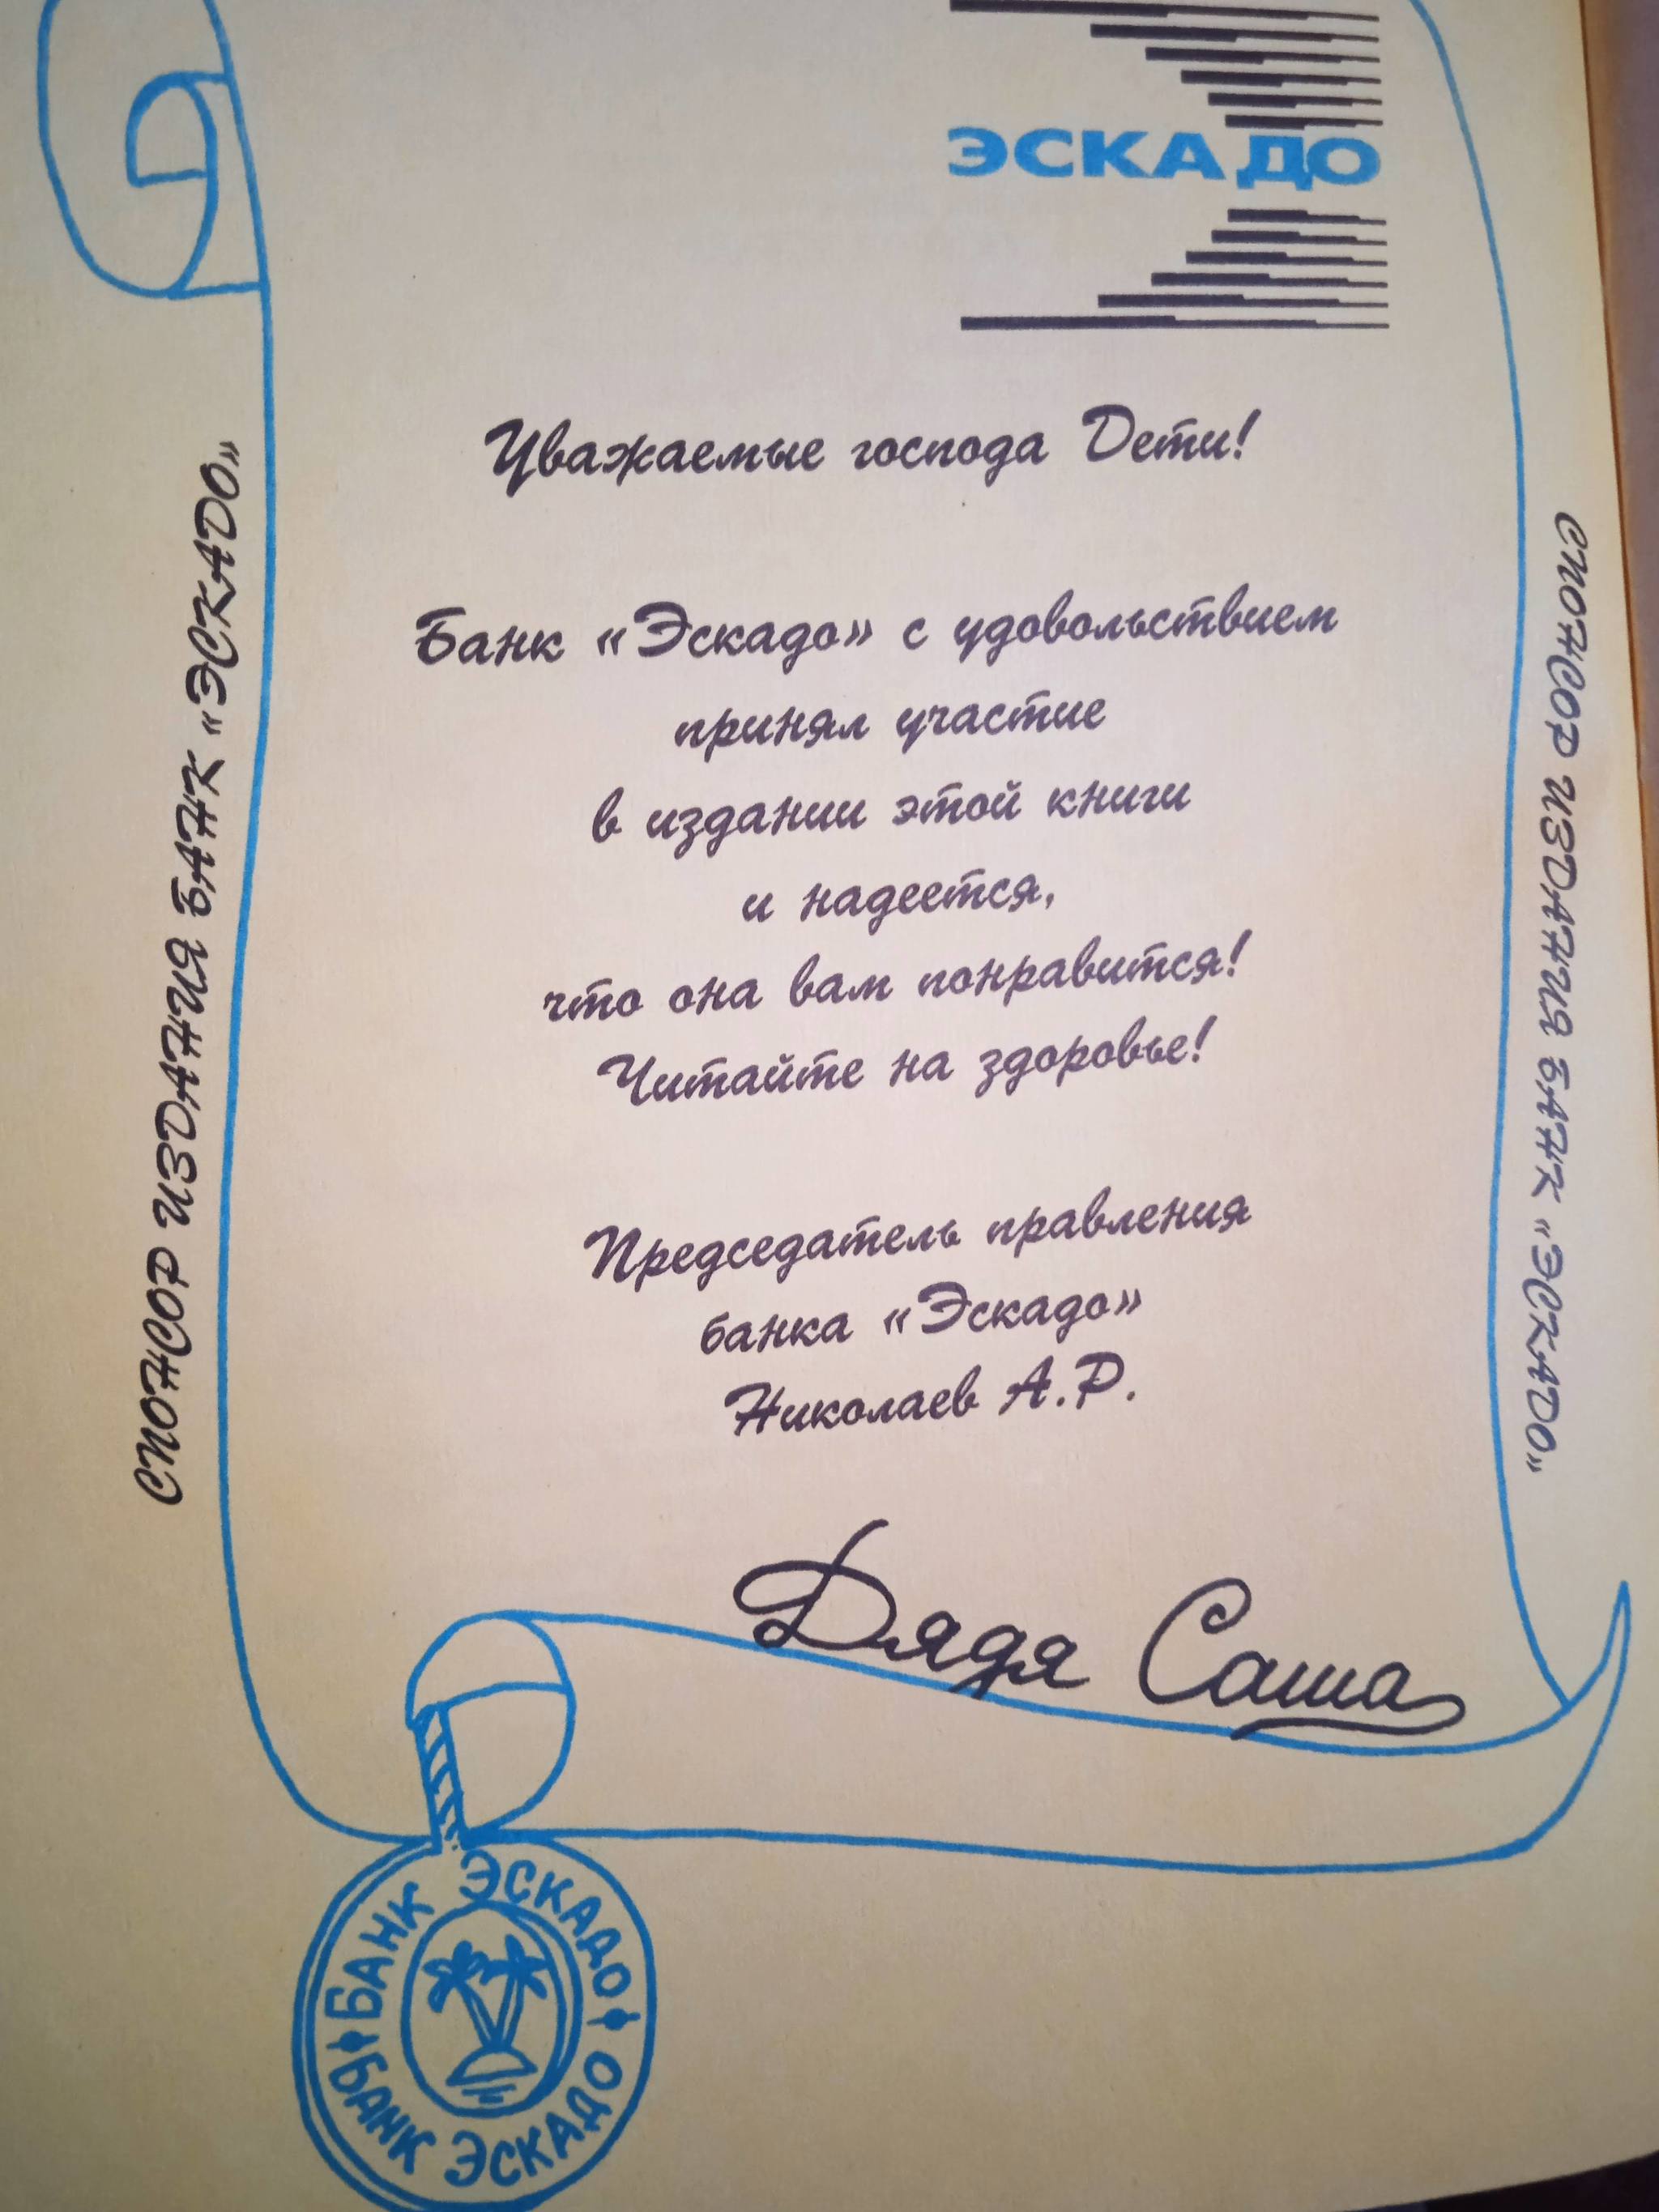 ЭСКАДО
Уважаемые господа Дети!
Банк «Эскадо» с удовольствием
принял участие
в издании этой книги
и надеется,
что она вам понравится!
Читайте на здоровье!
Председатель правления
банка «Эскадо»
Николаев А.Р.
Дядя Саша
СПОНСОР ИЗДАНИЯ БАНК «ЭСКАДО»
СПОНСОР ИЗДАНИЯ БАНК «ЭСКАДО»
БАНК ЭСКАДО
БАНК ЭСКАДО